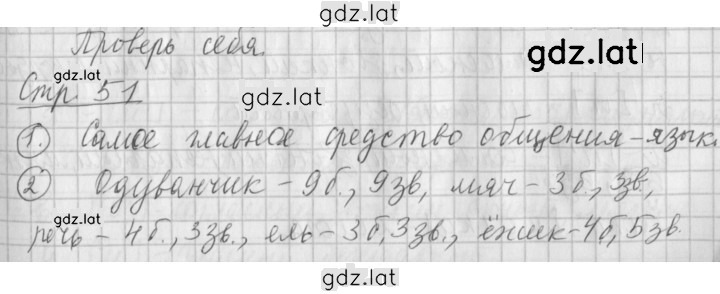 gdz.lat
Проверь себя.
gdz.lat
gdz.lat
Стр. 51
gdz.lat
1. Самое главное средство общения – язык.
2 Одуванчик – 9б., 9зв, мяч – 3б., 3зв,
gdz.lat
речь – 4б., 3зв., ель – 3б, 3зв., ёжик – 4б, 5зв.
gdz.lat
gdz.lat